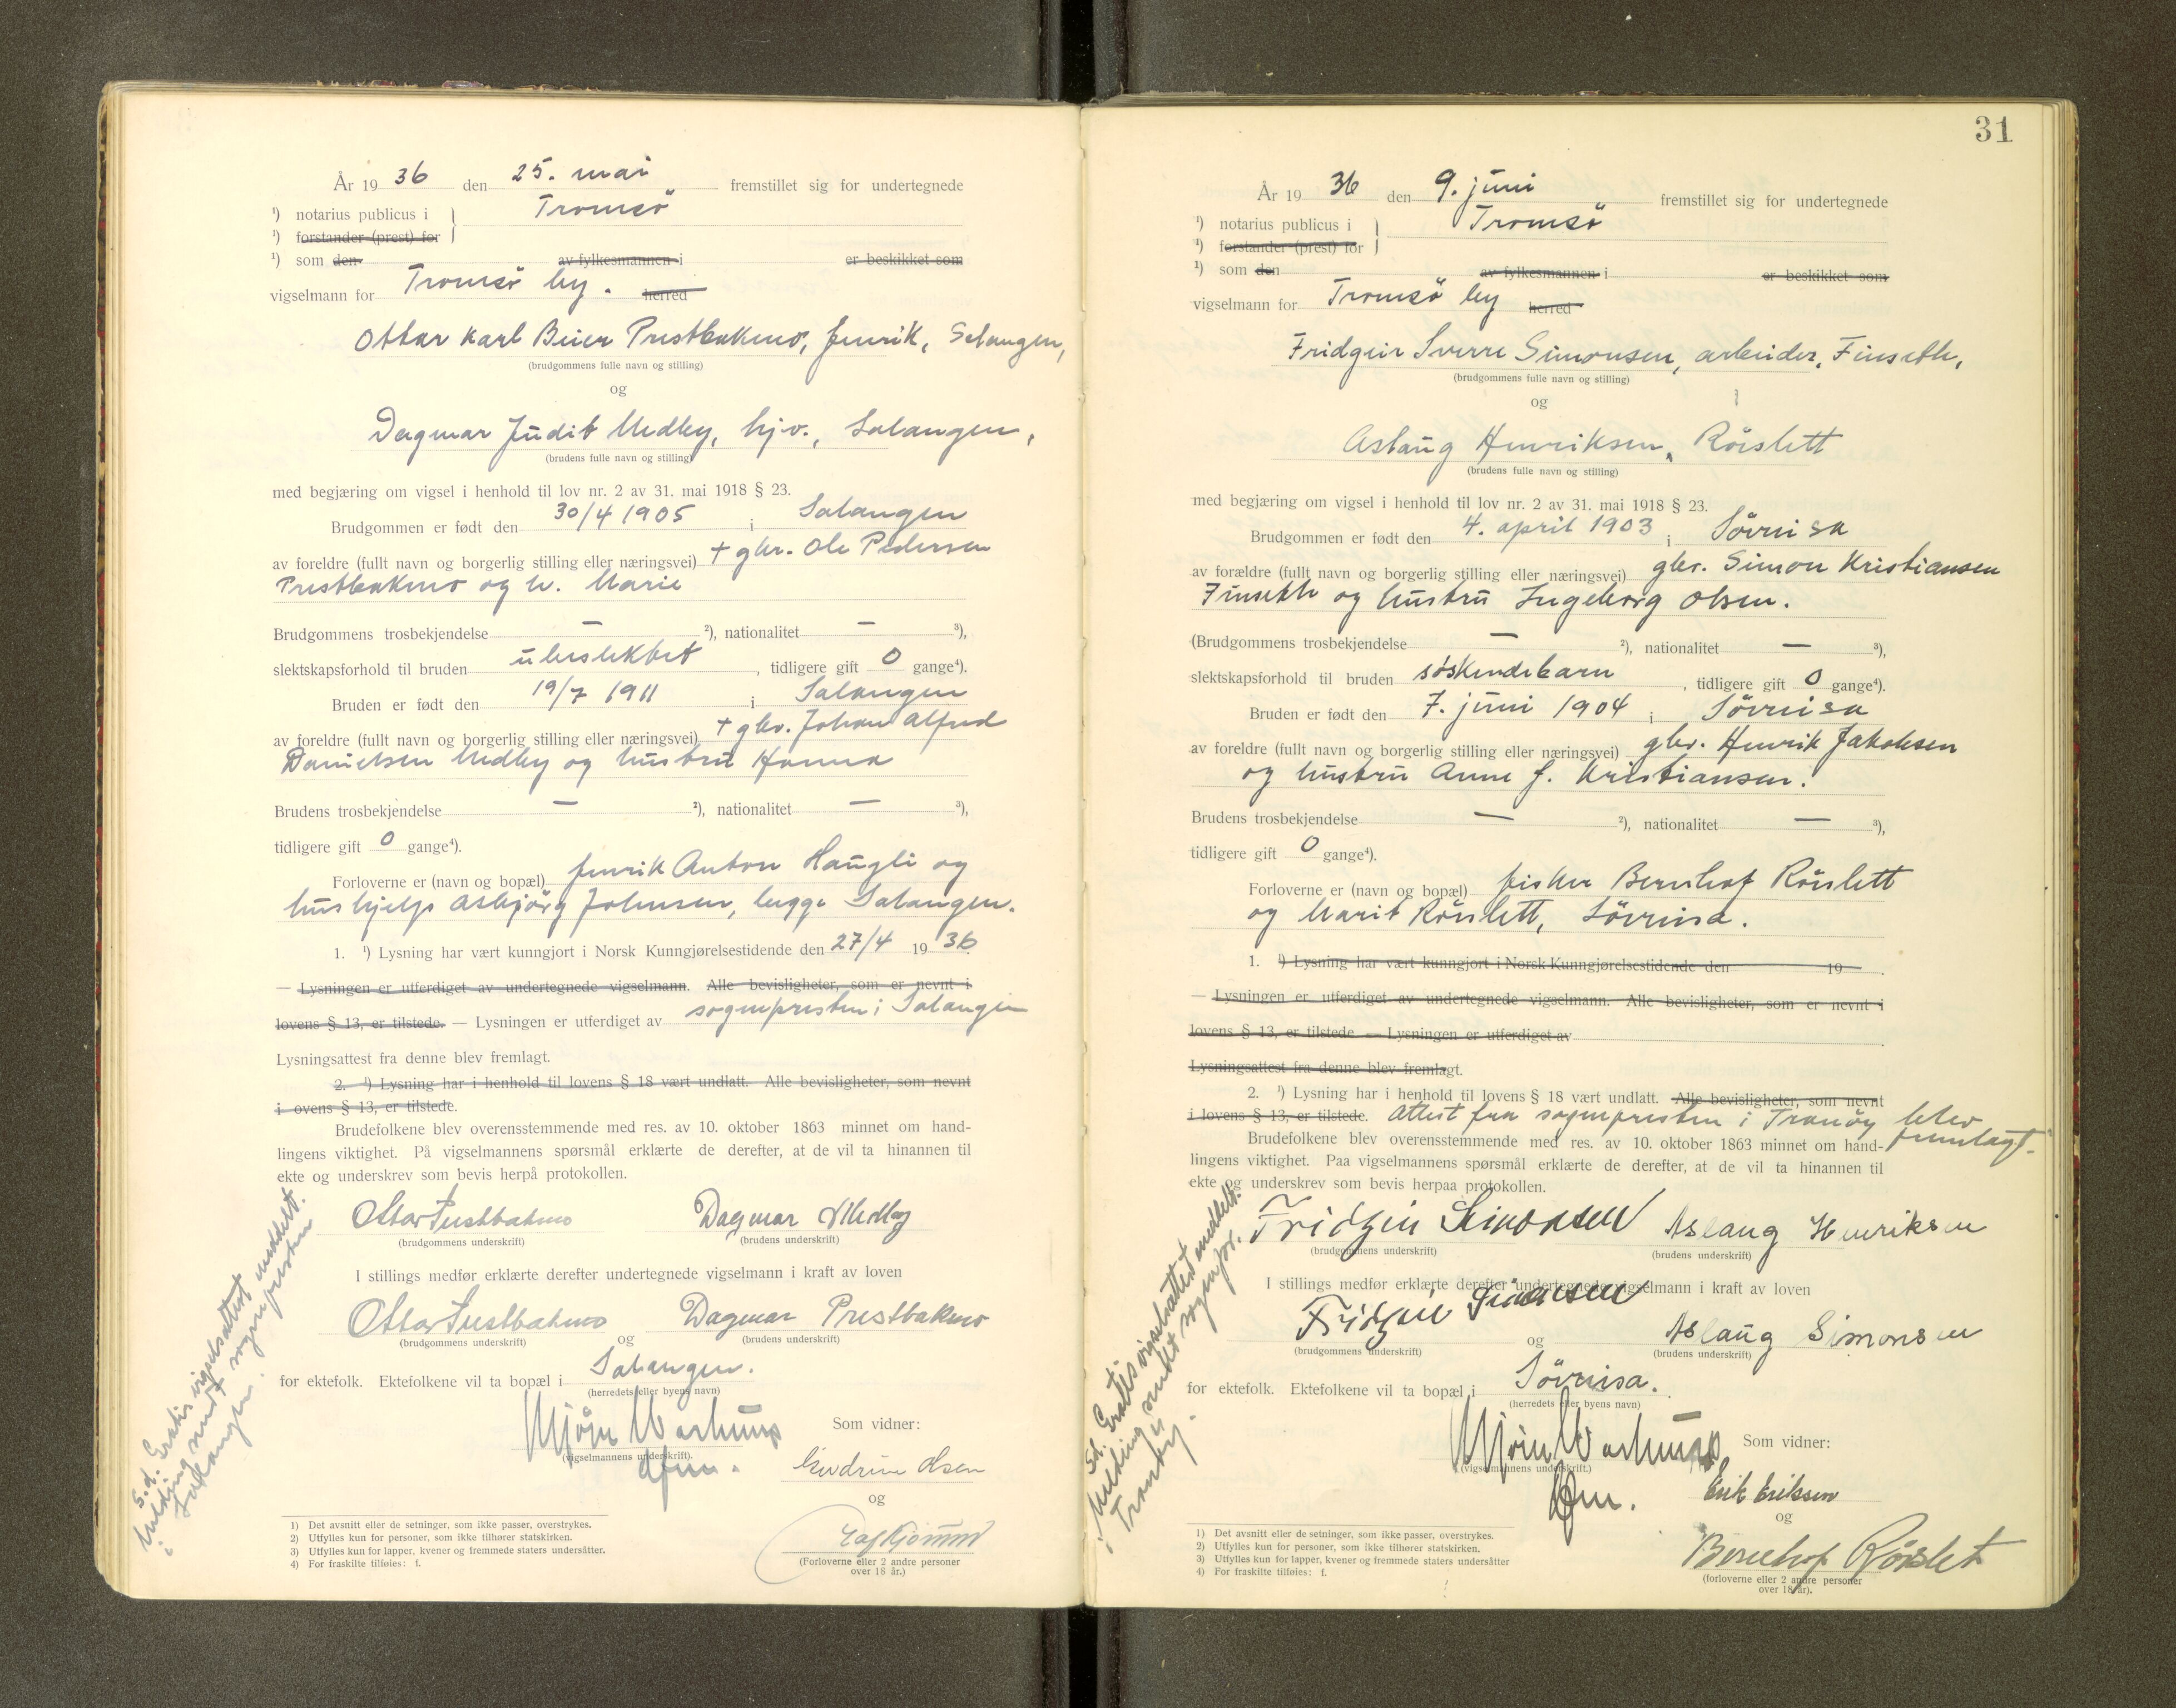 År 19 36 den 25. mai fremstillet sig for undertegnede
¹) notarius publicus i } Tromsö
¹) forstander (prest) for
¹) som den av fylkesmannen i er beskikket som
vigselmann for Tromsö by. herred
Ottar Karl Beier Prestbakmo, fenrik, Salangen,
(brudgommens fulle navn og stilling)
og
Dagmar Judit Medby, hjv., Salangen,
(brudens fulle navn og stilling)
med begjæring om vigsel i henhold til lov nr. 2 av 31. mai 1918 § 23.
Brudgommen er født den 30/4 1905 i Salangen
av foreldre (fullt navn og borgerlig stilling eller næringsvei) + gbr. Ole Pedersen
Prestbakmo og h. Marie
Brudgommens trosbekjendelse — ²), nationalitet — ³),
slektskapsforhold til bruden ubeslektet, tidligere gift 0 gange⁴).
Bruden er født den 19/7 1911 i Salangen
av foreldre (fullt navn og borgerlig stilling eller næringsvei) + gbr. Johan Alfred
Danielsen Medby og hustru Hanna
Brudens trosbekjendelse — ²), nationalitet — ³),
tidligere gift 0 gange⁴).
Forloverne er (navn og bopæl) fenrik Anton Haugli og
hushjelp Asbjörg Johnsen, begge Salangen.
1. ¹) Lysning har vært kunngjort i Norsk Kunngjørelsestidende den 27/4 19 36.
— Lysningen er utferdiget av undertegnede vigselmann. Alle bevisligheter, som er nevnt i
lovens § 13, er tilstede. — Lysningen er utferdiget av sognepresten i Salangen
Lysningsattest fra denne blev fremlagt.
2. ¹) Lysning har i henhold til lovens § 18 vært undlatt. Alle bevisligheter, som nevnt
i ovens § 13, er tilstede.
Brudefolkene blev overensstemmende med res. av 10. oktober 1863 minnet om hand-
lingens viktighet. På vigselmannens spørsmål erklærte de derefter, at de vil ta hinannen til
ekte og underskrev som bevis herpå protokollen.
Ottar Prestbakmo Dagmar Medby
(brudgommens underskrift) (brudens underskrift)
I stillings medfør erklærte derefter undertegnede vigselmann i kraft av loven
Ottar Prestbakmo og Dagmar Prestbakmo
(brudgommens underskrift) (brudens underskrift)
for ektefolk. Ektefolkene vil ta bopæl i Salangen.
(herredets eller byens navn)
Som vidner:
(vigselmannens underskrift).
Gudrun Olsen
og
(Forloverne eller 2 andre personer
over 18 år.)
S.d. Gratis vigselsattest meddelt.
Melding sendt sognepresten
i Salangen.
1) Det avsnitt eller de setninger, som ikke passer, overstrykes.
2) Utfylles kun for personer, som ikke tilhører statskirken.
3) Utfylles kun for lapper, kvener og fremmede staters undersåtter.
4) For fraskilte tilføies: f.
31
År 19 36 den 9. juni fremstillet sig for undertegnede
¹) notarius publicus i } Tromsö
¹) forstander (prest) for
¹) som den av fylkesmannen i er beskikket som
vigselmann for Tromsö by herred
Fridgeir Sverre Simonsen, arbeider, Finseth,
(brudgommens fulle navn og stilling)
og
Aslaug Henriksen, Röislett
(brudens fulle navn og stilling)
med begjæring om vigsel i henhold til lov nr. 2 av 31. mai 1918 § 23.
Brudgommen er født den 4. april 1903 i Sörreisa
av forældre (fullt navn og borgerlig stilling eller næringsvei) gbr. Simon Kristiansen
Finseth og hustru Ingeborg Olsen.
(Brudgommens trosbekjendelse — ²), nationalitet — ³),
slektskapsforhold til bruden söskendebarn, tidligere gift 0 gange⁴).
Bruden er født den 7. juni 1904 i Sörreisa
av foreldre (fullt navn og borgerlig stilling eller næringsvei) gbr. Henrik Jakobsen
og hustru Anne J. Kristiansen.
Brudens trosbekjendelse — ²), nationalitet — ³),
tidligere gift 0 gange⁴).
Forloverne er (navn og bopæl) fisker Bernhof Röislett
og Marit Röislett, Sörreisa.
1. ¹) Lysning har vært kunngjort i Norsk Kunngjørelsestidende den 19 .
— Lysningen er utferdiget av undertegnede vigselmann. Alle bevisligheter, som er nevnt i
lovens § 13, er tilstede — Lysningen er utferdiget av
Lysningsattest fra denne blev fremlagt.
2. ¹) Lysning har i henhold til lovens § 18 vært undlatt. Alle bevisligheter, som nevnt
i lovens § 13, er tilstede. Attest fra sognepresten i Tranöy blev fremlagt.
Brudefolkene blev overensstemmende med res. av 10. oktober 1863 minnet om hand-
lingens viktighet. Paa vigselmannens spørsmål erklærte de derefter, at de vil ta hinannen til
ekte og underskrev som bevis herpaa protokollen.
Fridgeir Simonsen Aslaug Henriksen
(brudgommens underskrift) (brudens underskrift)
I stillings medfør erklærte derefter undertegnede vigselmann i kraft av loven
Fridgeir Simonsen og Aslaug Simonsen
(brudgommens underskrift) (brudens underskrift)
for ektefolk. Ektefolkene vil ta bopæl i Sörreisa.
(herredets eller byens navn)
Som vidner:
(vigselmannens underskrift.)
Erik Eriksen
og
Bernhof Röislet
(forloverne eller 2 andre personer
over 18 år).
S.d. Gratis vigselsattest meddelt.
Melding er sendt sognepr.
i Tranöy.
1) Det avsnitt eller de setninger, som ikke passer, overstrykes.
2) Utfylles kun for personer, som ikke tilhører statskirken.
3) Utfylles kun for lapper, kvener og fremmede staters undersåtter
4) For fraskilte tilføies: f.